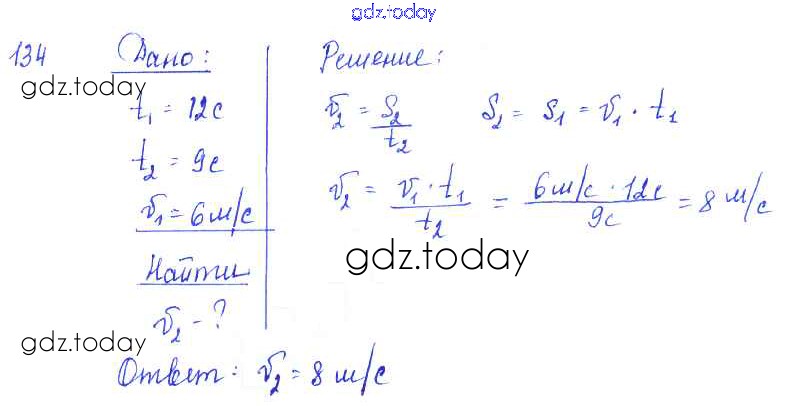 gdz.today
134 Дано:
gdz.today
t₁ = 12с
t₂ = 9с
v₁ = 6 м/с
Найти
v₂ - ?
gdz.today
Решение:
v₂ = S₂/t₂ S₂ = S₁ = v₁ · t₁
v₂ = v₁ · t₁/t₂ = 6 м/с · 12с/9с = 8 м/с
gdz.today
Ответ: v₂ = 8 м/с